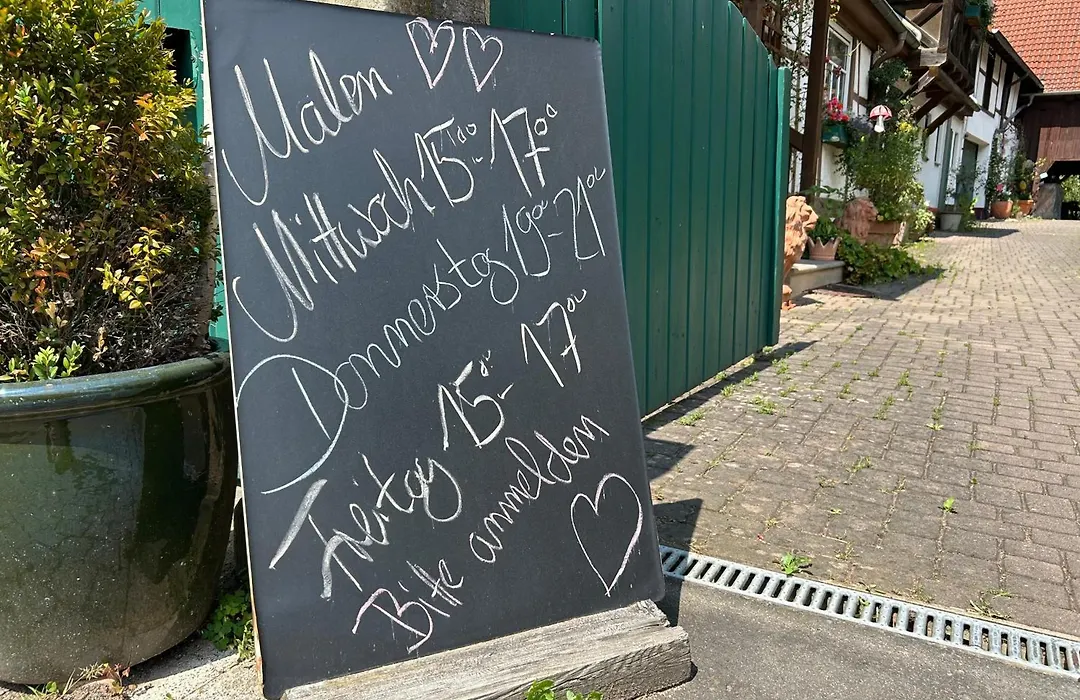 Malen ♡♡
Mittwoch 15⁰⁰-17⁰⁰
Donnerstag 19⁰⁰-21⁰⁰
Freitag 15⁰⁰-17⁰⁰
Bitte anmelden ♡